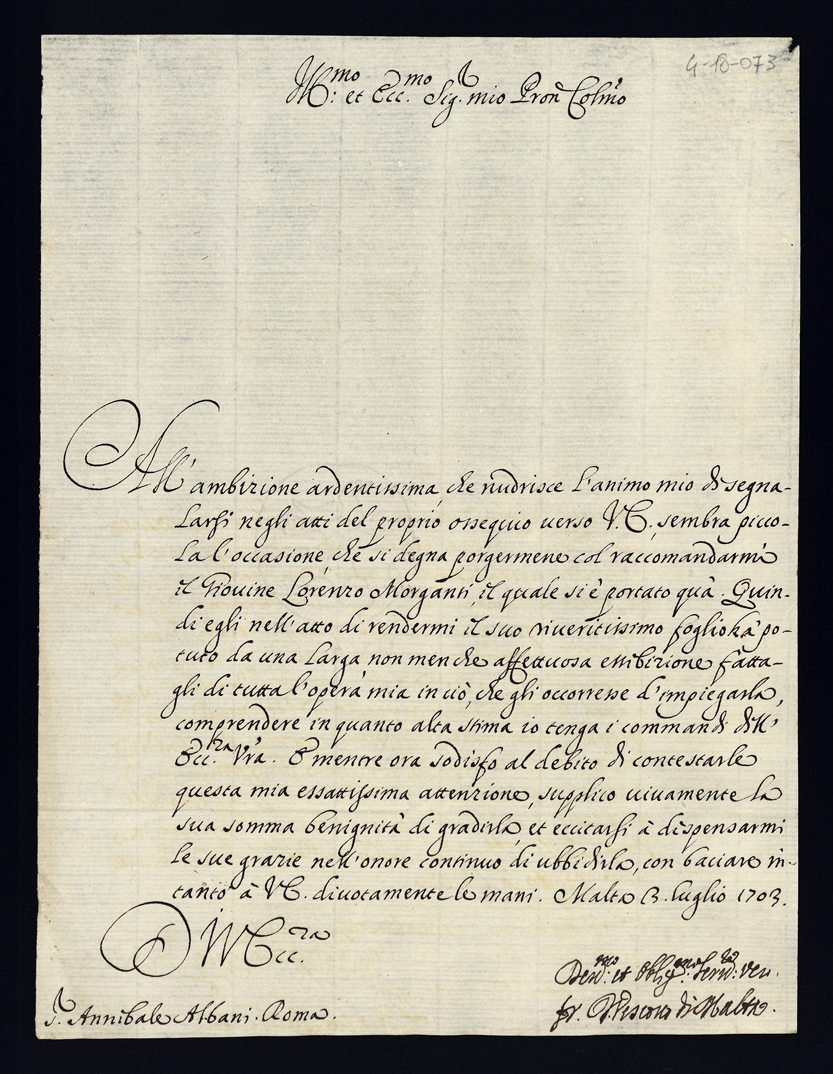 4-18-073
Ill.mo et Ecc.mo Sig.r mio Pron Colmo
All'ambizione ardentissima, che nudrisce l'animo mio di segna-
larsi negli atti del proprio ossequio verso V.E., sembra picco-
la l'occasione, che si degna porgermene col raccomandarmi
il Giovine Lorenzo Morganti, il quale si è portato quà. Quin-
di egli nell'atto di rendermi il suo riveritissimo foglio hà po-
tuto da una larga non men che affettuosa essibizione fatta-
gli di tutta l'opera mia in ciò, che gli occorresse d'impiegarla,
comprendere in quanto alta stima io tenga i commandi dell'
Ecc.za Vra. E mentre ora sodisfo al debito di contestarle
questa mia essattissima attenzione, supplico vivamente la
sua somma benignità di gradirla, et eccitarsi à dispensarmi
le sue grazie nell'onore continuo di ubbidirla, con baciare in-
tanto à V.E. divotamente le mani. Malta 13. luglio 1703.
Di V Ecc.za
Dev.mo et Obblig.mo Serv.re ven.
fr. Il Vescovo di Malta.
S.r Annibale Albani. Roma.